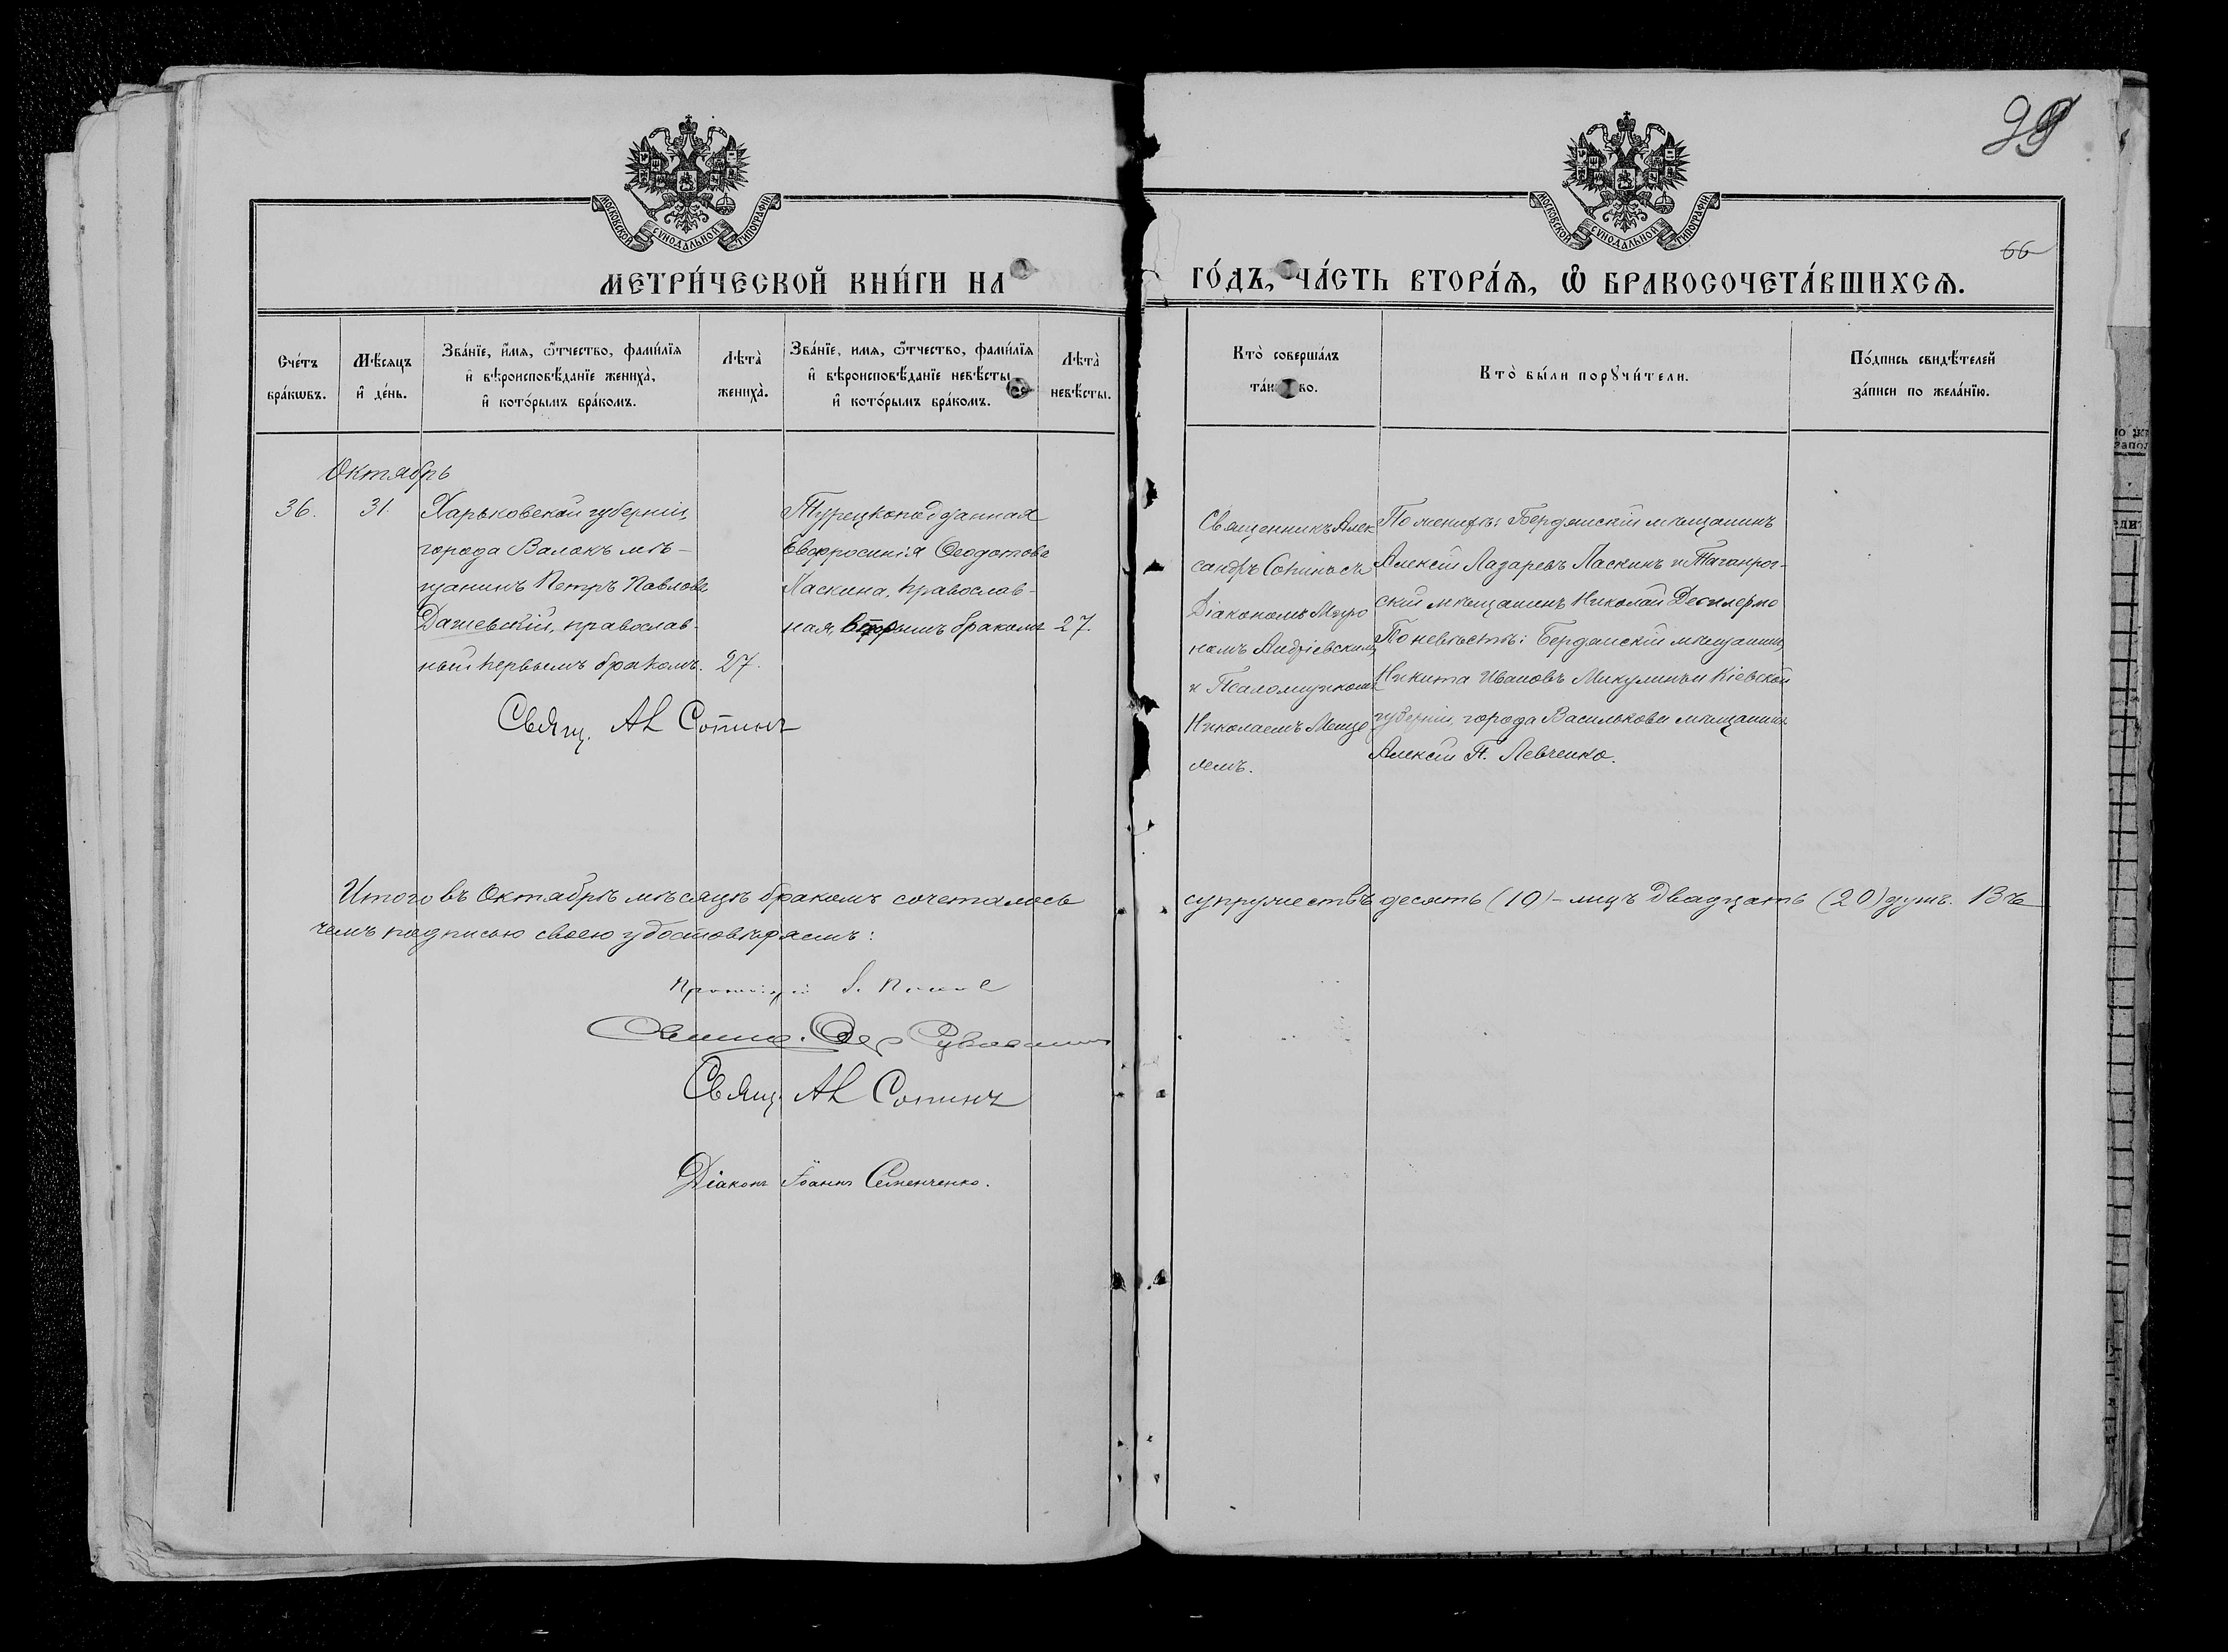 99
МОСКОВСКОЙ СѴНОДАЛЬНОЙ ТИПОГРАФІИ
МОСКОВСКОЙ СѴНОДАЛЬНОЙ ТИПОГРАФІИ
66
МЕТРИ́ЧЕСКОЙ КНИ́ГИ НА
ГО́ДЪ, ЧА́СТЬ ВТОРА́Ѧ, Ѡ҆ БРАКОСОЧЕТА́ВШИХСѦ.
Сче́тъ
бра́кѡвъ.
Мѣ́сяцъ
и҆ де́нь.
Зва́нїе, и҆́мѧ, ѻ҆́тчество, фамѝлїѧ
и҆ вѣроисповѣ́данїе жениха̀,
и҆ кото́рымъ бра́комъ.
Лѣта̀
жениха̀.
Зва́нїе, имѧ, ѻ҆́тчество, фамѝлїѧ
и҆ вѣроисповѣ́данїе невѣ́сты
и҆ кото́рымъ бра́комъ.
Лѣта̀
невѣ́сты.
Кто̀ соверша́лъ
та́инство.
Кто̀ бы́ли порꙋчи́тели.
По́дпись свидѣ́телей
за́писи по жела́нїю.
Октябрь
36.
31.
Харьковской губерніи,
города Валокъ мѣ-
щанинъ Петръ Павловъ
Дашевскій, православ-
ный первымъ бракомъ.
27.
Свящ. Ал Сопинъ
Турецкоподданная
Евфросинія Ѳеодотова
Ласкина, православ-
ная, вторымъ бракомъ
27.
Священникъ Алек
сандръ Сопинъ съ
Діакономъ Миро
номъ Андріевскимъ
и Псаломщикомъ
Николаемъ Менце
лемъ.
По женихѣ: Бердянскій мѣщанинъ
Алексій Лазаревъ Ласкинъ и Таганрог-
скій мѣщанинъ Николай
По невѣстѣ: Бердянскій мѣщанинъ
Никита Ивановъ Микулинъ и Кіевской
губерніи, города Василькова мѣщанинъ
Алексій П. Левченко.
Итого въ Октябрѣ мѣсяцѣ бракомъ сочеталось супружествъ десять (10) - лицъ двадцать (20) душъ. Въ
чемъ подписью своею удостовѣряемъ:
Протоіерей
Свящ. Ал Сопинъ
Діаконъ Іоаннъ Семенченко.